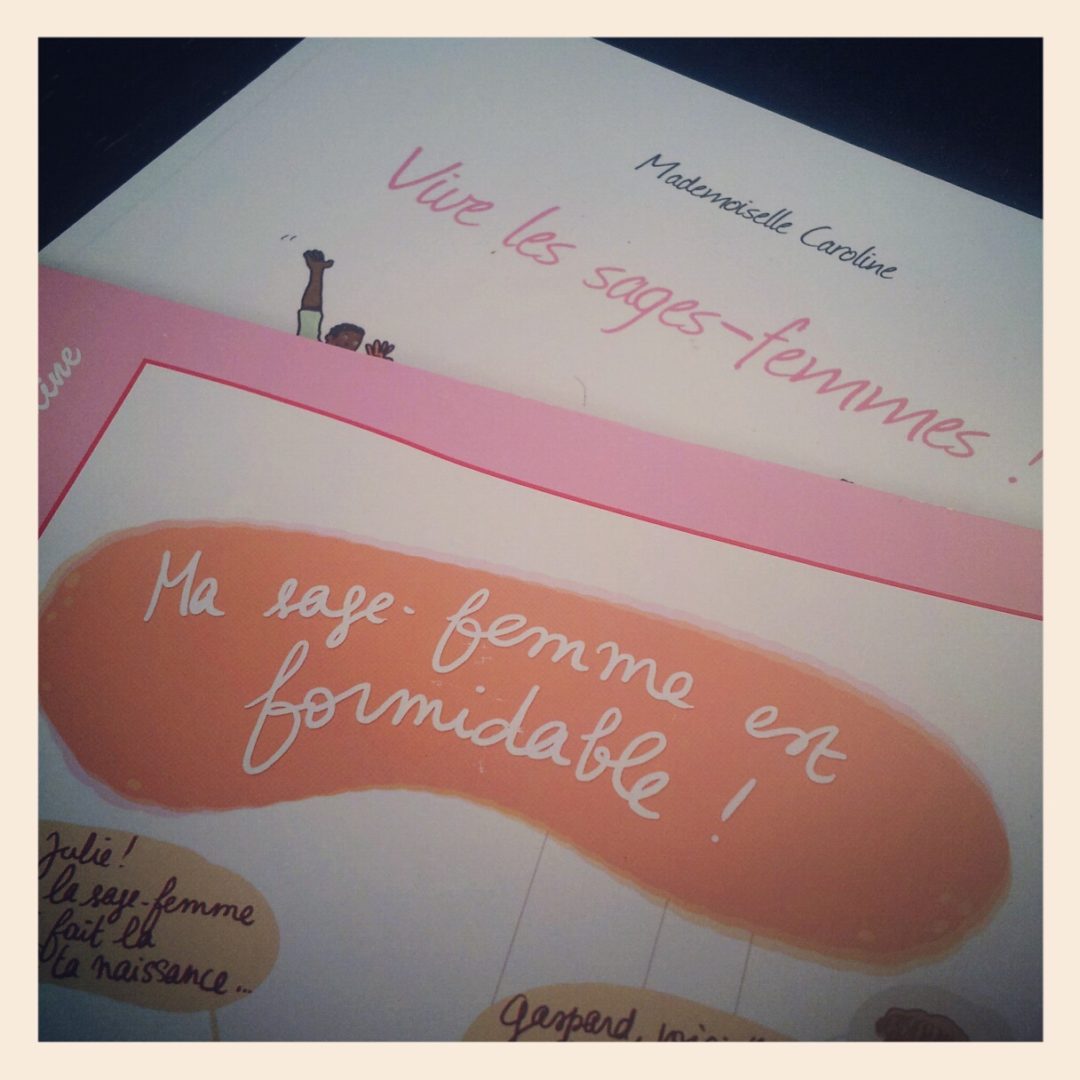 Mademoiselle Caroline
Vive les sages-femmes !
ine
Ma sage-femme est
formidable !
Julie !
la sage-femme
fait la
ta naissance...
Gaspard,